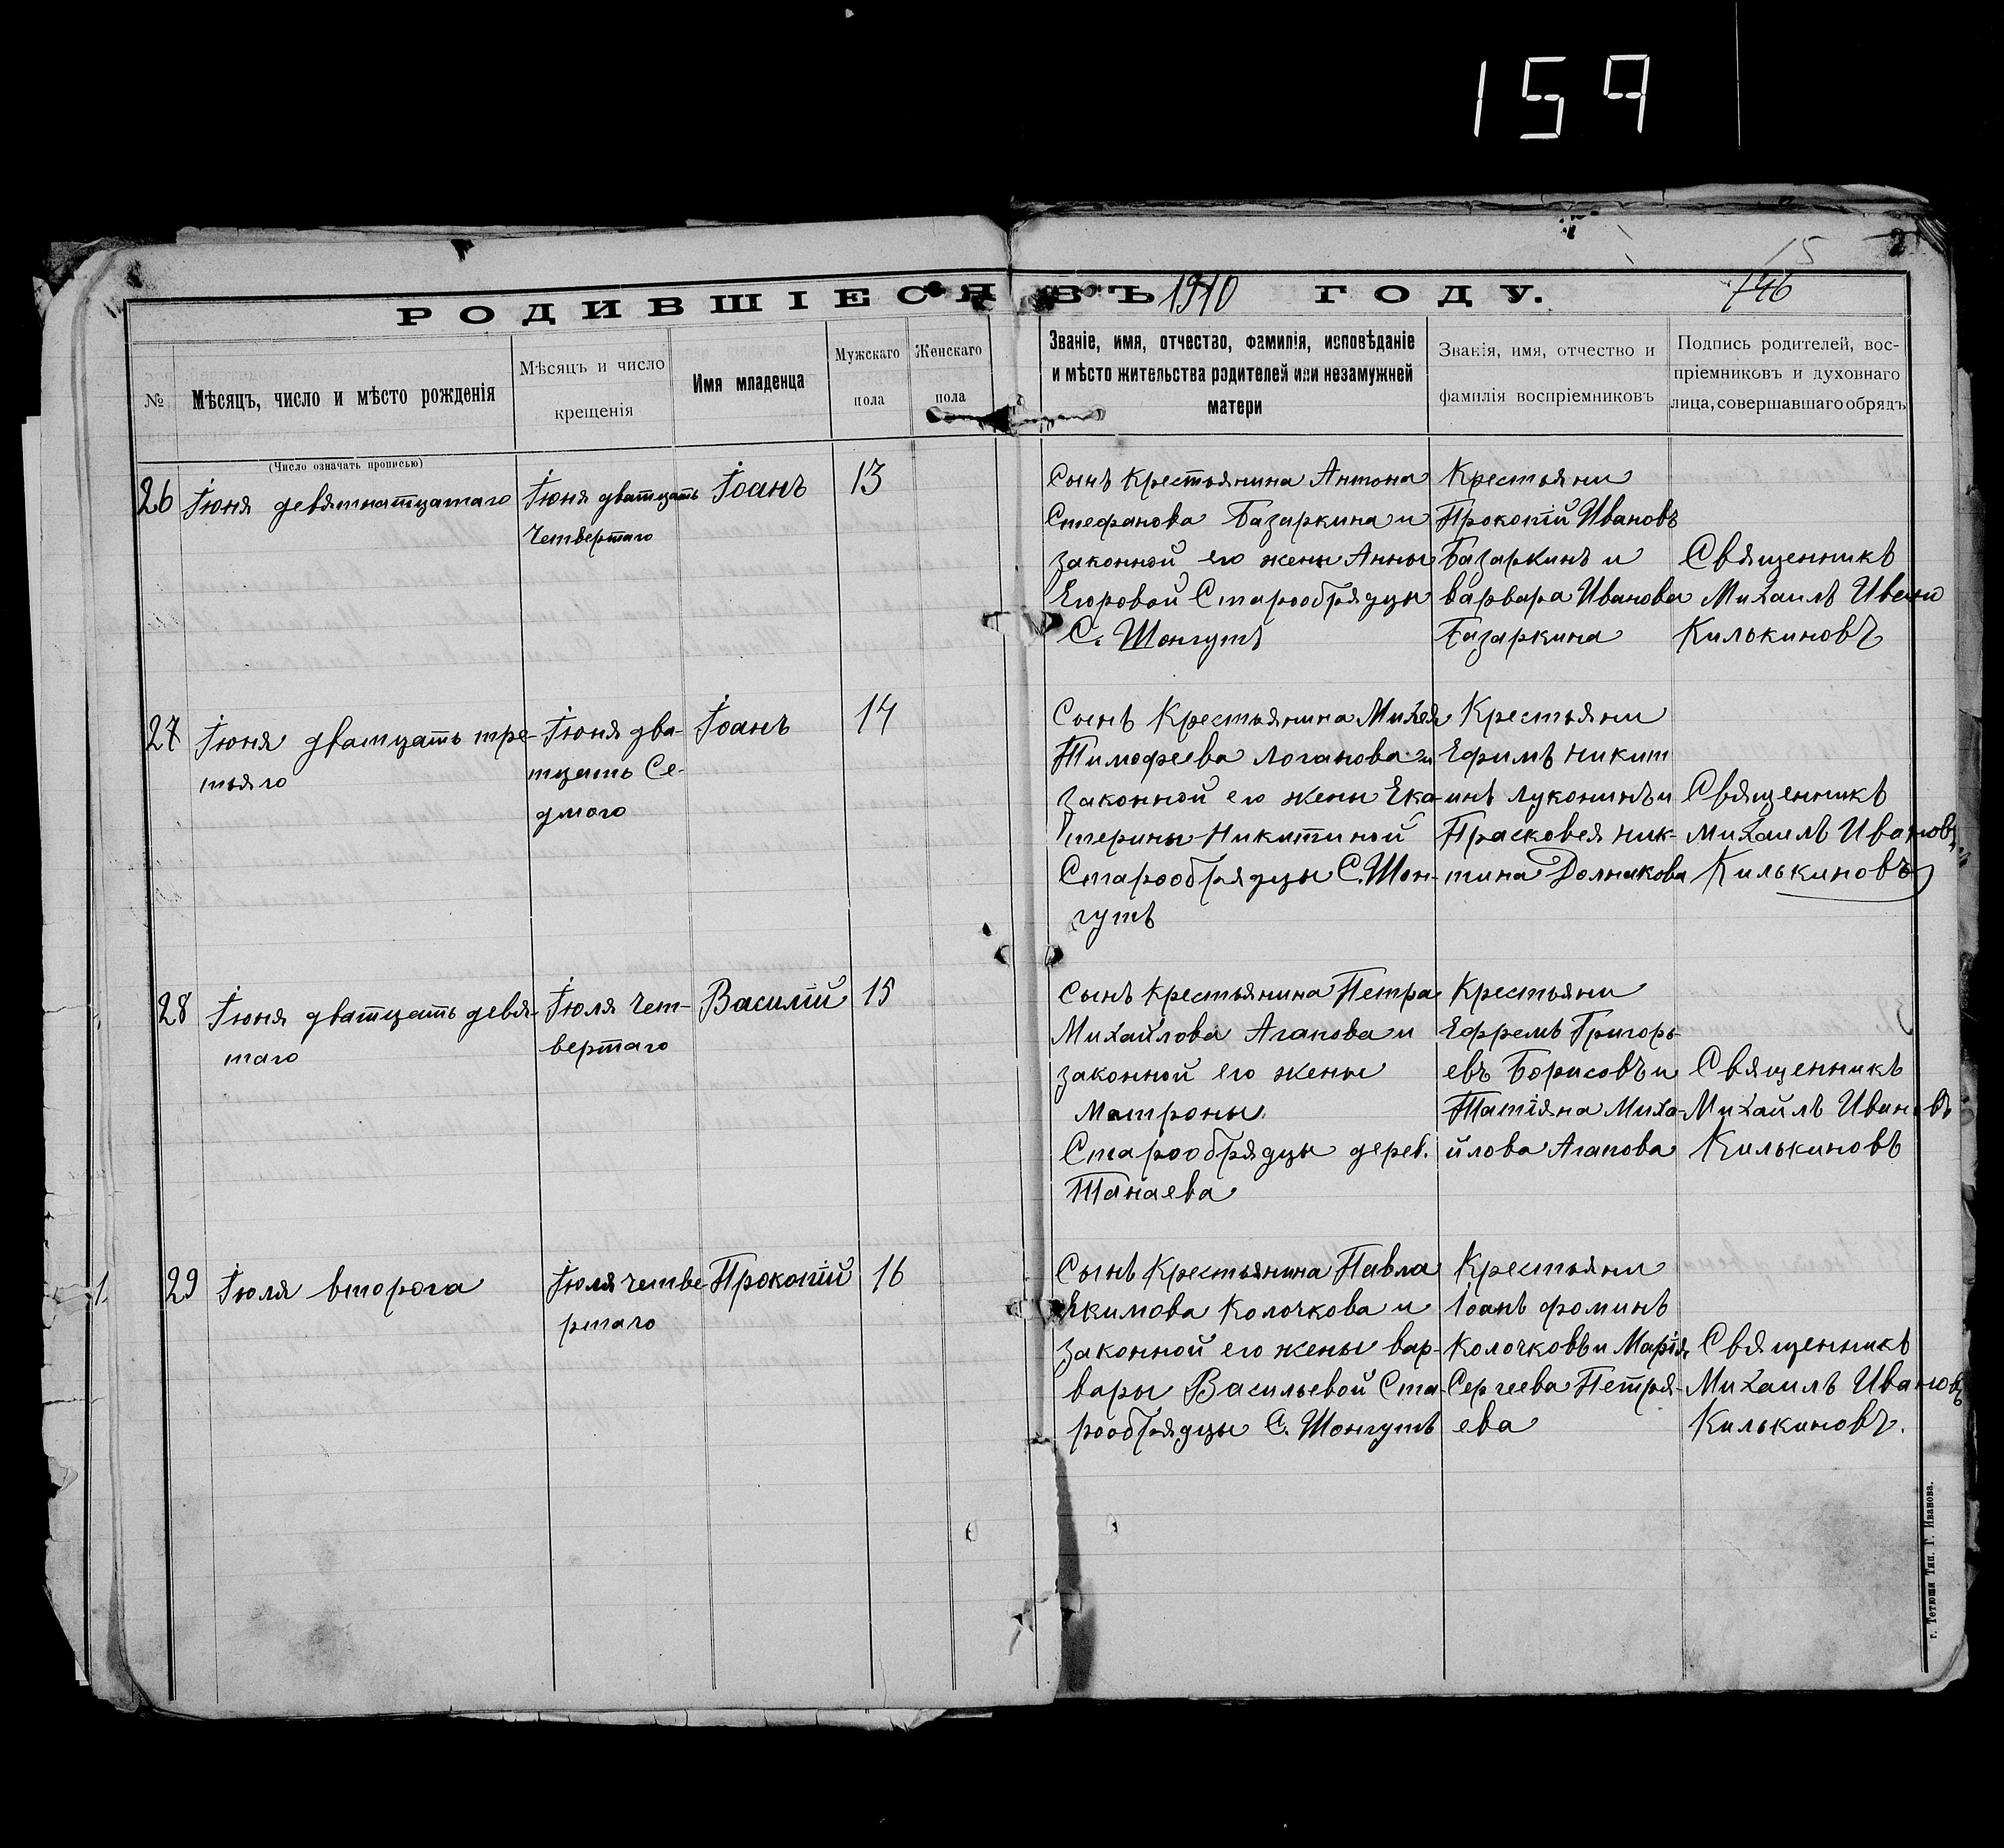 159
15
2
746
РОДИВШІЕСЯ ВЪ 1910 ГОДУ.
№
Мѣсяцъ, число и мѣсто рожденія
(Число означать прописью)
Мѣсяцъ и число
крещенія
Имя младенца
Мужскаго
пола
Женскаго
пола
Званіе, имя, отчество, фамилія, исповѣданіе
и мѣсто жительства родителей или незамужней
матери
Званія, имя, отчество и
фамилія воспріемниковъ
Подпись родителей, вос-
пріемниковъ и духовнаго
лица, совершавшаго обрядъ
26
Іюня девятнатцатаго
Іюня дватцать
Четвертаго
Іоанъ
13
Сынъ Крестьянина Антона
Стефанова Базаркина и
законной его жены Анны
Егоровой Старообрядцы
С. Шонгутъ
Крестьяни
Прокопій Ивановъ
Базаркинъ и
варвара Иванова
Базаркина
Священникъ
Михаилъ Ивано
Килькиновъ
27
Іюня дватцать тре-
тьяго
Іюня два-
тцать Се-
дмого
Іоанъ
14
Сынъ Крестьянина Михея
Тимофеева Логанова и
Законной его жены Ека-
терины Никитиной
Старообрядцы С. Шон-
гутъ
Крестьяни
Ефимъ Никит
инъ Луконинъ и
Прасковея ник-
тина Долникова
Священникъ
Михаилъ Ивановъ
Килькиновъ
28
Іюня дватцать девя-
таго
Іюля чет-
вертаго
Василій
15
Сынъ Крестьянина Петра
Михайлова Агапова и
законной его жены
Матроны.
Старообрядцы дерев.
Танаева
Крестьяни
Ефремъ Григорь-
евъ Борисовъ и
Татіяна Миха-
йлова Агапова
Священникъ
Михайлъ Ивановъ
Килькиновъ
1.
29
Іюля второга
Іюля четве-
ртаго
Прокопій
16
Сынъ Крестьянина Павла
Екимова Колочкова и
законной его жены вар-
вары Васильевой Ста-
рообрядцы С. Шонгутъ
Крестьяни
Іоанъ фоминъ
Колочковъ и Марія
Сергеева Петря-
ева
Священникъ
Михаилъ Ивановъ
Килькиновъ.
г. Тетюши Тип. Г. Иванова.